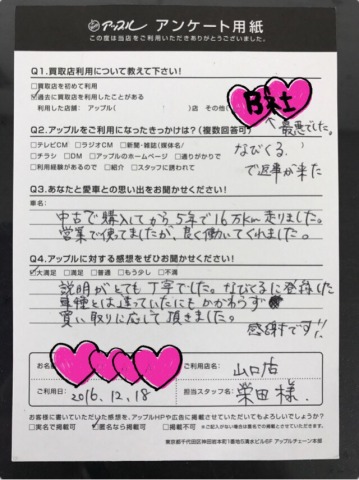 アップル アンケート用紙
この度は当店をご利用いただきありがとうございました。
Q1.買取店利用について教えて下さい!
□買取を初めて利用
☑過去に買取を利用したことがある
利用した店舗: アップル( )店 その他(
B社士
最悪でした。
Q2.アップルをご利用になったきっかけは?(複数回答可)
□テレビCM □ラジオCM □新聞・雑誌(媒体名/
□チラシ □DM □アップルのホームページ □通りがかりで
□利用経験があるので □紹介 □スタッフに誘われて
なびくる
で返事が来た
Q3.あなたと愛車との思い出をお聞かせください!
車名:
中古で購入してから5年で16万km走りました。
営業で使ってましたが、良く働いてくれました。
Q4.アップルに対する感想をぜひお聞かせください!
☑大満足 □満足 □普通 □もう少し □不満
説明がとても丁寧でした。なびくるに登録した
車種とは違っていたにもかかわらず
買い取りに応じて頂きました。
感謝です!!
お名前
ご利用店名: 山口店
ご利用日: 2016.12.18
担当スタッフ名: 栄田様.
お客様に書いていただいた感想を、アップルHPや広告に掲載させていただいてもよろしいでしょうか?
□実名で掲載可 ☑匿名なら掲載可 □掲載不可 ※ご記入がない場合は匿名での掲載とさせていただきます。
東京都千代田区神田錦本町1番地 アップルチェーン本部